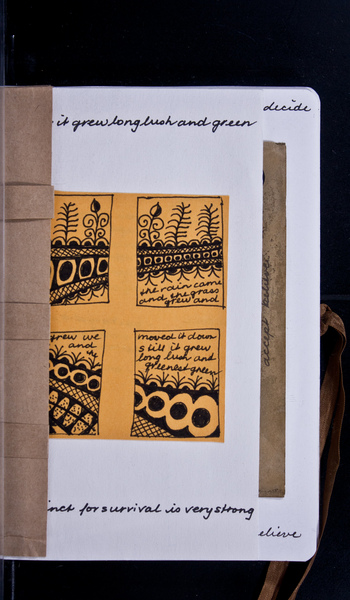 decide
it grew long lush and green
the rain came
and the grass
grew and
grew we
and
mowed it down
still it grew
long lush and
greenest green
accept
inct for survival is very strong
elieve